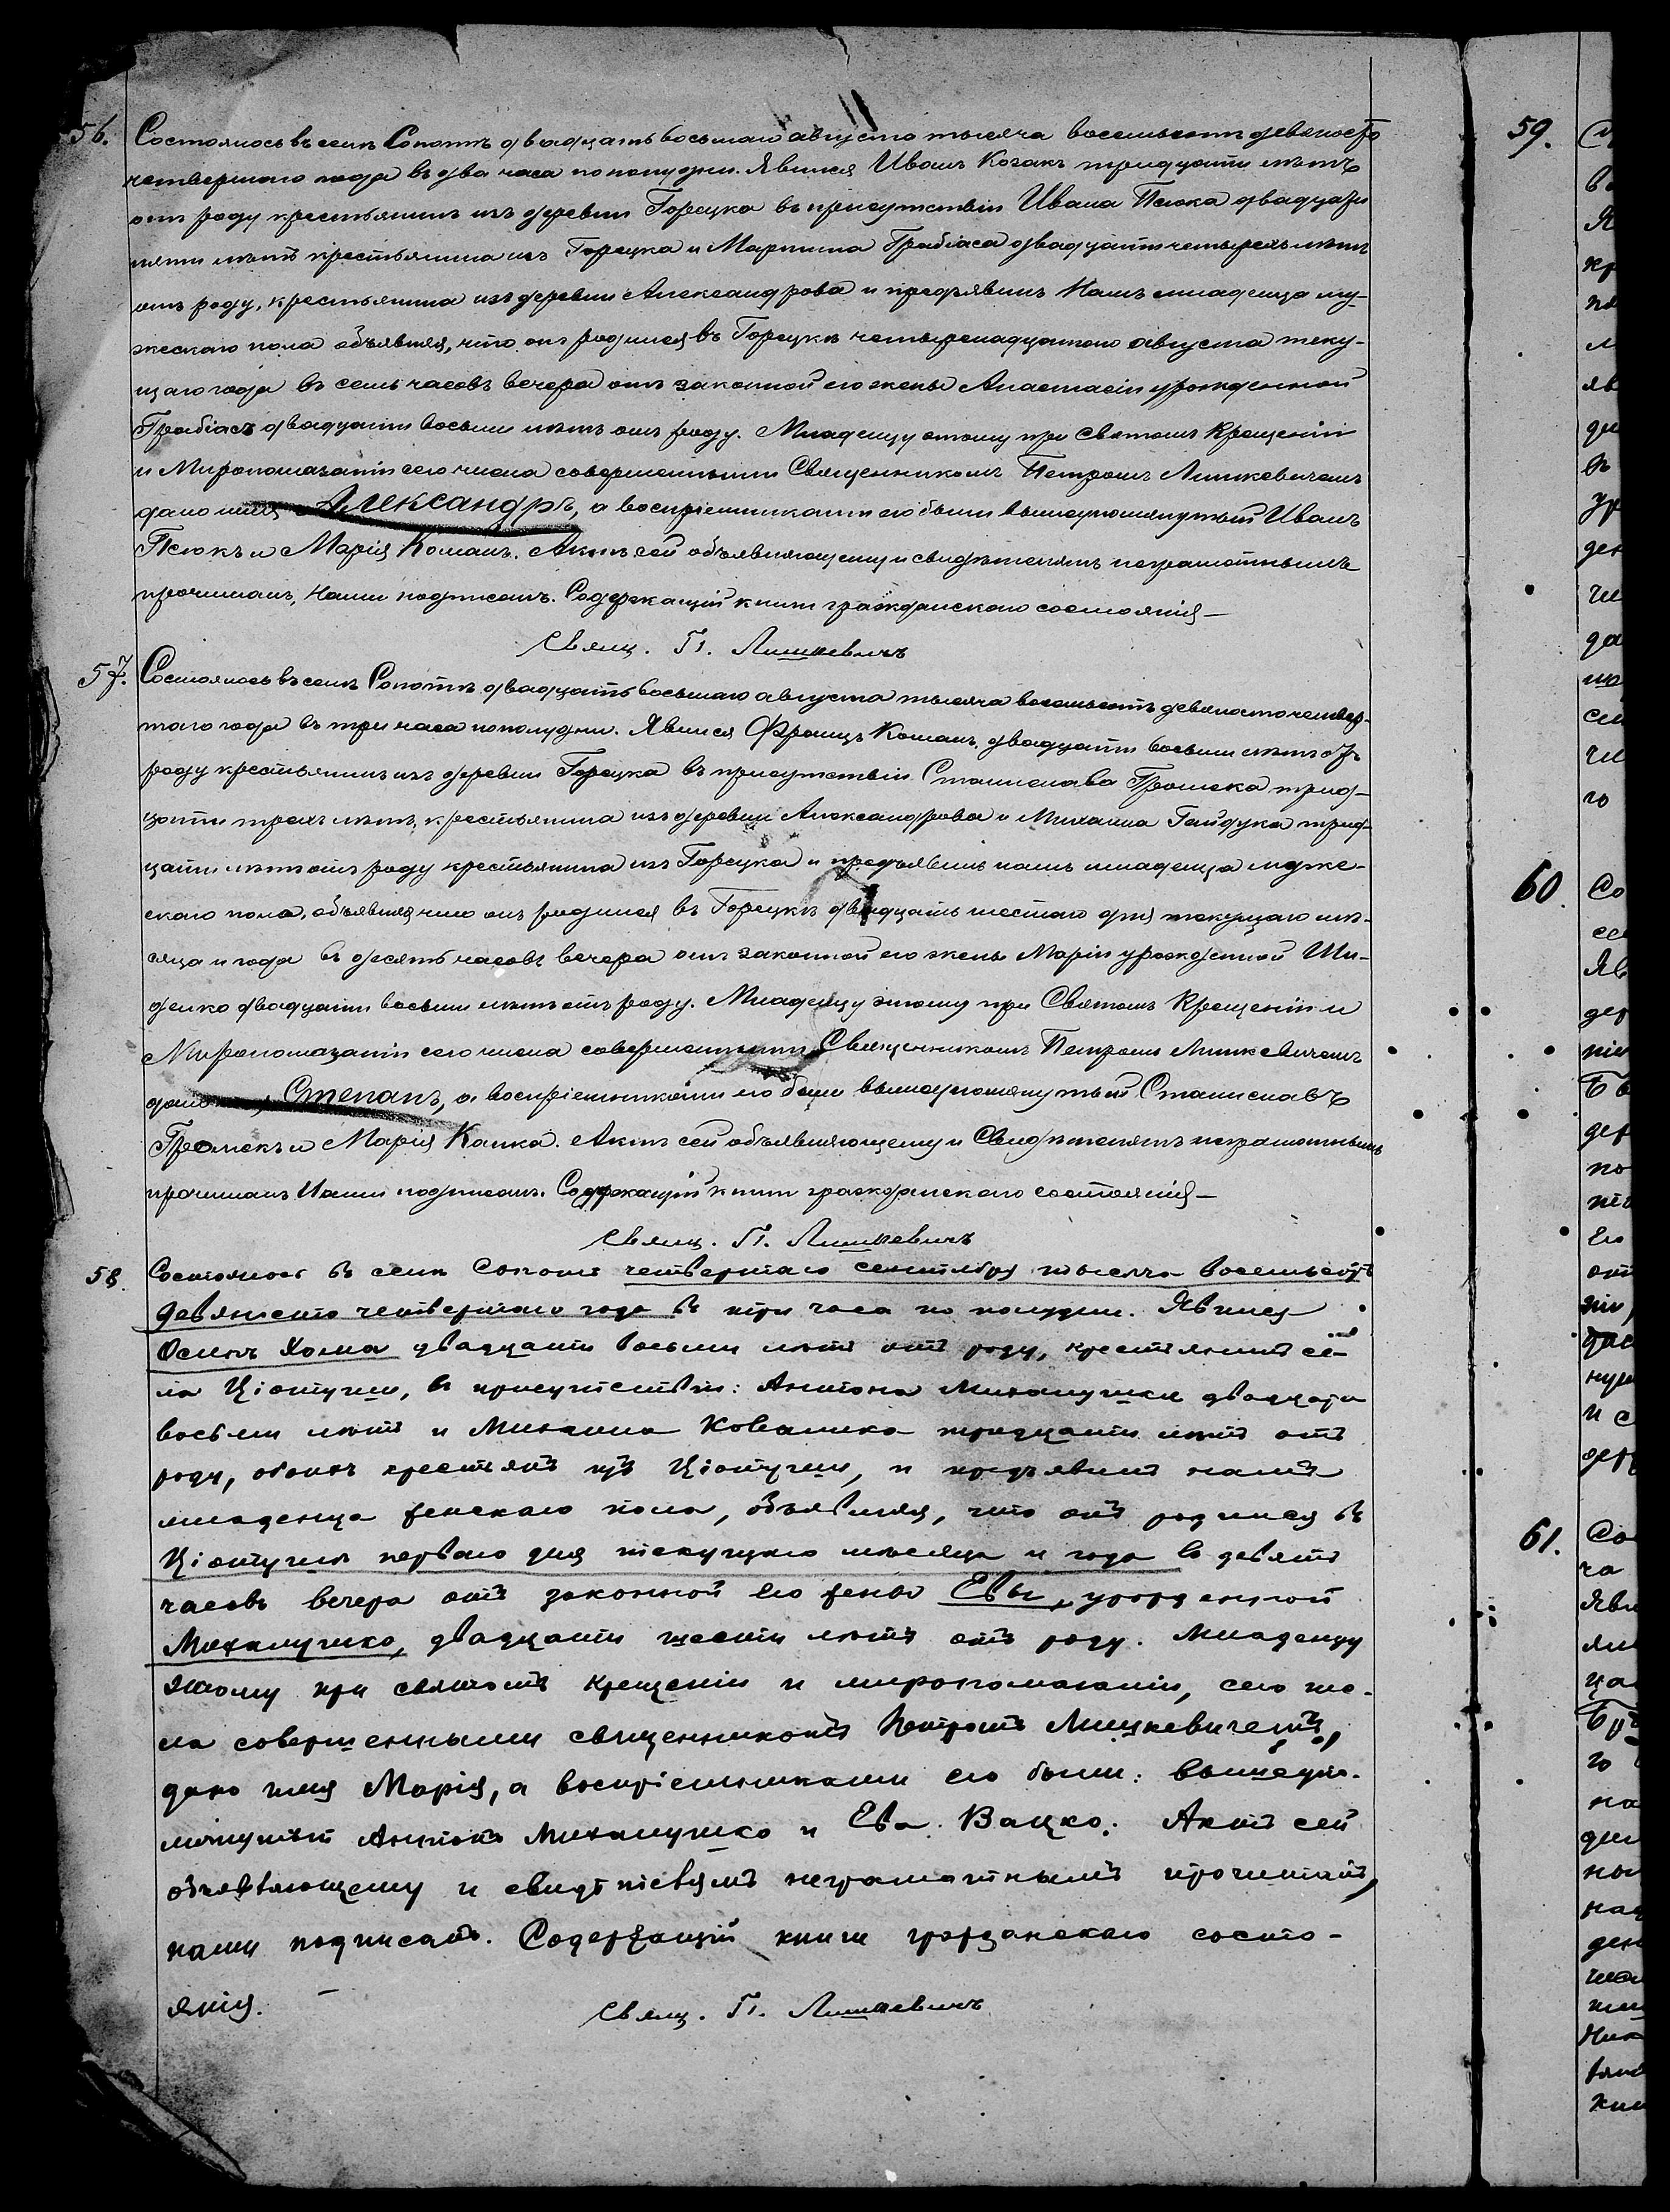 56. Состоялось въ селѣ Сопотѣ двадцать восьмаго августа тысяча восемьсотъ девяносто
четвертаго года въ два часа по полудни. Явился Иванъ Козакъ тридцати лѣтъ
отъ роду крестьянинъ изъ деревни Горецка въ присутствіи Ивана Псюка двадцати
пяти лѣтъ крестьянина изъ Горецка и Мартина Грабіаса двадцати четырехъ лѣтъ
отъ роду, крестьянина изъ деревни Александрова и предъявилъ Намъ младенца му-
жескаго пола объявляя, что онъ родился въ Горецкѣ четырнадцатого августа теку-
щаго года въ семь часовъ вечера отъ законной его жены Анастасіи урожденной
Грабіасъ двадцати восьми лѣтъ отъ роду. Младенцу этому при Святомъ Крещеніи
и Мѵропомазаніи сего числа совершенными Священникомъ Петромъ
дано имя Александръ, а воспріемниками его были вышеупомянутый Иванъ
Псюкъ и Марія Команъ. Актъ сей объявляющему и свидѣтелямъ неграмотнымъ
прочитанъ, Нами подписанъ. Содержащій книги гражданскаго состоянія —
Свящ. П.
57. Состоялось въ селѣ Сопотѣ двадцать восьмаго августа тысяча восемьсотъ девяносто четвер-
таго года въ три часа по полудни. Явился Францъ Команъ, двадцати восьми лѣтъ отъ
роду крестьянинъ изъ деревни Горецка въ присутствіи Станислава трид-
цати трехъ лѣтъ, крестьянина изъ деревни Александрова и Михаила Гайдука трид-
цати лѣтъ отъ роду крестьянина изъ Горецка и предъявилъ намъ младенца муже-
скаго пола, объявляя что онъ родился въ Горецкѣ двадцать шестаго дня текущаго мѣ-
сяца и года въ десять часовъ вечера отъ законной его жены Маріи урожденной Ши-
делко двадцати восьми лѣтъ отъ роду. Младенцу этому при Святомъ Крещеніи и
Мѵропомазаніи сего числа совершенными Священникомъ Петромъ
дано имя Степанъ, а воспріемниками его были вышеупомянутый Станиславъ
и Марія Капка. Актъ сей объявляющему и Свидѣтелямъ неграмотнымъ
прочитанъ Нами подписанъ. Содержащій книги гражданскаго состоянія —
Свящ. П.
58. Состоялось въ селѣ Сопотѣ четвертаго сентября тысяча восемьсотъ
девяносто четвертаго года въ три часа по полудни. Явился
Осипъ Хома двадцати восьми лѣтъ отъ роду, крестьянинъ се-
ла Ціотуши, въ присутствіи: Антона Михалушки двадцати
восьми лѣтъ и Михаила Ковалика тридцати лѣтъ отъ
роду, обоихъ крестьянъ изъ Ціотуши, и предъявилъ намъ
младенца женскаго пола, объявляя, что онъ родился въ
Ціотушѣ перваго дня текущаго мѣсяца и года въ девять
часовъ вечера отъ законной его жены Евы, урожденной
Михалушко, двадцати шести лѣтъ отъ роду. Младенцу
этому при святомъ крещеніи и миропомазаніи, сего чи-
сла совершенными священникомъ Петромъ
дано имя Марія, а воспріемниками его были: вышеупо-
мянутый Антонъ Михалушко и Ева Вацко. Актъ сей
объявляющему и свидѣтелямъ неграмотнымъ прочитанъ,
нами подписанъ. Содержащій книги гражданскаго состо-
янія. —
Свящ. П.
59.
60.
61.